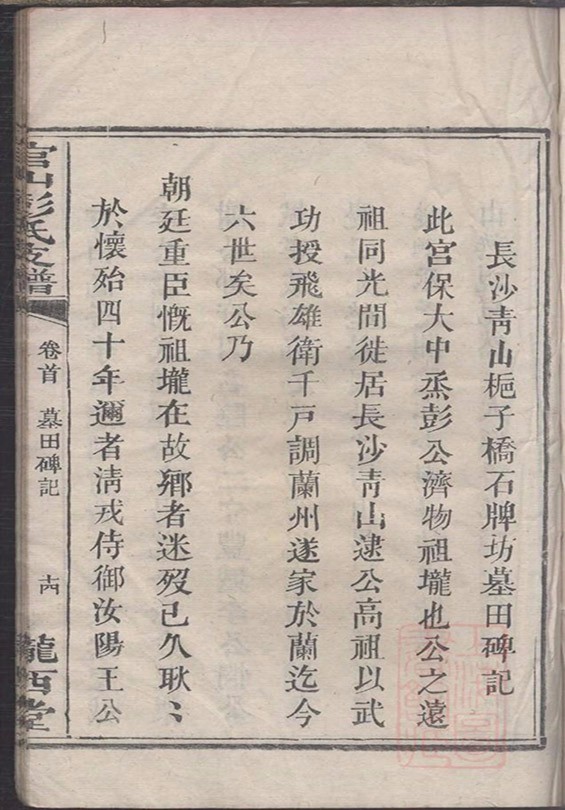 長沙靑山梔子橋石牌坊墓田碑記
此宮保大中丞彭公濟物祖壠也公之遠
祖同光間徙居長沙靑山逮公高祖以武
功授飛雄衛千戸調蘭州遂家於蘭迄今
六世矣公乃
朝廷重臣慨祖壠在故鄕者迷歿已久耿〻
於懷殆四十年邇者淸戎侍御汝陽王公
官山彭氏支譜
卷首 墓田碑記
十四
隴西堂